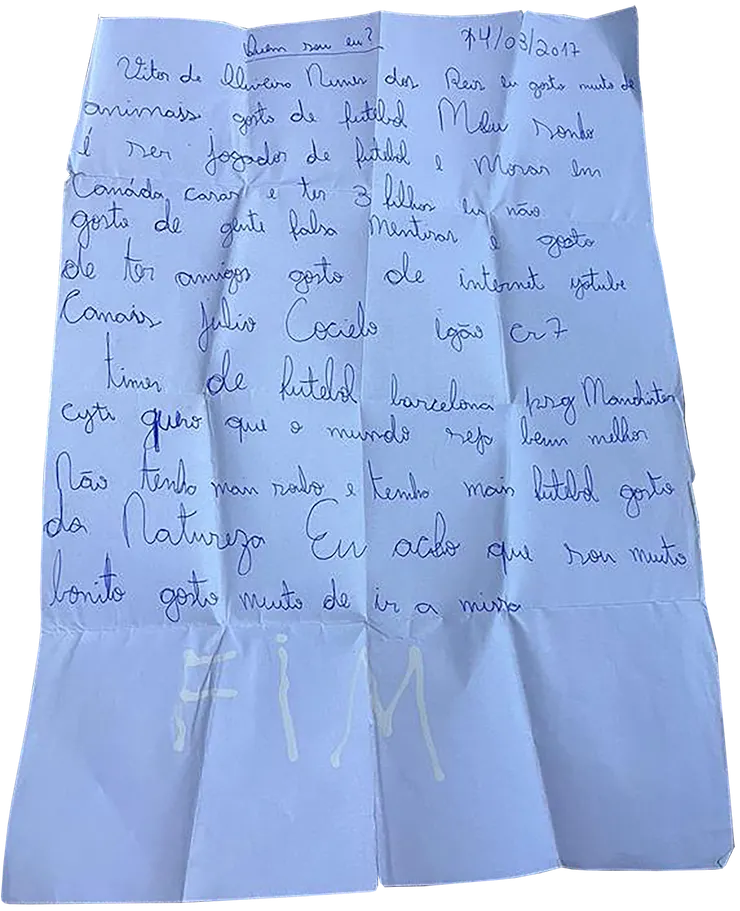 Quem sou eu?
14/03/2017
Vitor de Oliveira Nunes dos Reis eu gosto muito de
animais gosto de futebol Meu sonho
é ser jogador de futebol e Morar em
Canáda casar e ter 3 filhos eu não
gosto de gente falsa Mentiras e gosto
de ter amigos gosto de internet yotube
Canais Julio Cocielo igão cr7
times de futebol barcelona psg
cyti quero que o mundo seja bem melhor
Não tenha mais e tenha mais futebol gosto
da Natureza Eu acho que sou muito
bonito gosto muito de ir a missa
FIM